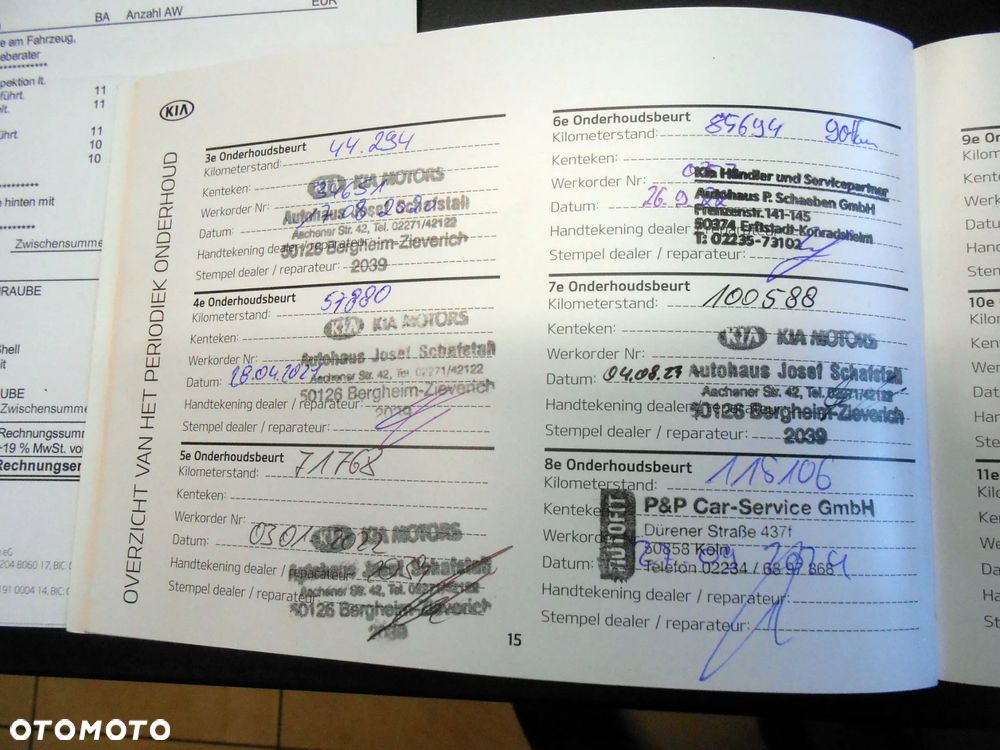 BA Anzahl AW EUR
e am Fahrzeug,
eberater
************
pektion lt.
führt. 11
lt. 11
ührt. 11
10
10
e hinten mit
Zwischensumme
RAUBE
Shell
it
AUBE
Zwischensumme
Rechnungssumm
19 % MwSt. vo
Rechnungser
eG
204 8060 17, BIC:
191 0004 14, BIC:
KIA
OVERZICHT VAN HET PERIODIEK ONDERHOUD
3e Onderhoudsbeurt
Kilometerstand: 44.294
Kenteken:
KIA KIA MOTORS
Werkorder Nr: 34651
Autohaus Josef Schafstall
Datum: 17.08.2020
Aachener Str. 42, Tel. 02271/42122
Handtekening dealer / reparateur:
50126 Bergheim-Zieverich
Stempel dealer / reparateur: 2039
4e Onderhoudsbeurt
Kilometerstand: 57880
Kenteken:
KIA KIA MOTORS
Werkorder Nr:
Autohaus Josef Schafstall
Datum: 28.04.2021
Aachener Str. 42, Tel. 02271/42122
50126 Bergheim-Zieverich
Handtekening dealer / reparateur:
2039
Stempel dealer / reparateur:
5e Onderhoudsbeurt
Kilometerstand: 71768
Kenteken:
Werkorder Nr:
KIA KIA MOTORS
Datum: 03.01.2022
Handtekening dealer / reparateur:
Autohaus Josef Schafstall
Aachener Str. 42, Tel. 02271/42122
Stempel dealer / reparateur:
50126 Bergheim-Zieverich
2039
6e Onderhoudsbeurt
Kilometerstand: 85694
Kenteken:
Kia Händler und Servicepartner
Werkorder Nr:
Autohaus P. Schaeben GmbH
Datum: 26.9.22
Frenzenstr. 141-145
50374 Erftstadt-Konradsheim
Handtekening dealer / reparateur:
T: 02235-73102
Stempel dealer / reparateur:
7e Onderhoudsbeurt
Kilometerstand: 100588
Kenteken:
KIA KIA MOTORS
Werkorder Nr:
Datum: 04.08.23
Autohaus Josef Schafstall
Aachener Str. 42, Tel. 02271/42122
Handtekening dealer / reparateur:
50126 Bergheim-Zieverich
Stempel dealer / reparateur: 2039
8e Onderhoudsbeurt
Kilometerstand: 115106
Kenteken:
AUTOFIT
P&P Car-Service GmbH
Dürener Straße 437f
Werkorder
50858 Köln
Datum:
Telefon 02234 / 68 97 868
Handtekening dealer / reparateur:
Stempel dealer / reparateur:
15
9e On
Kilom
Kent
Werk
Datu
Hand
Stem
10e
Kilo
Ken
We
Dat
Ha
St
11e
Kil
Ke
W
D
H
St
OTOMOTO